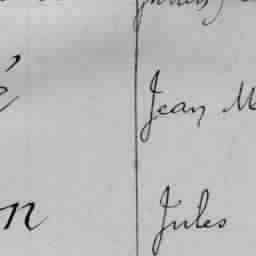 é Jean M
n Jules